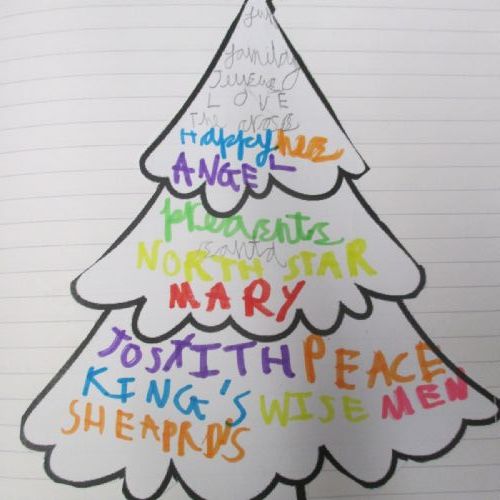 fun
family
Jesus
LOVE
The cross
Happy nes
ANGEL
presents
santa
NORTH STAR
MARY
JOSTITH PEACE
KING'S WISE MEN
SHEAPRD'S